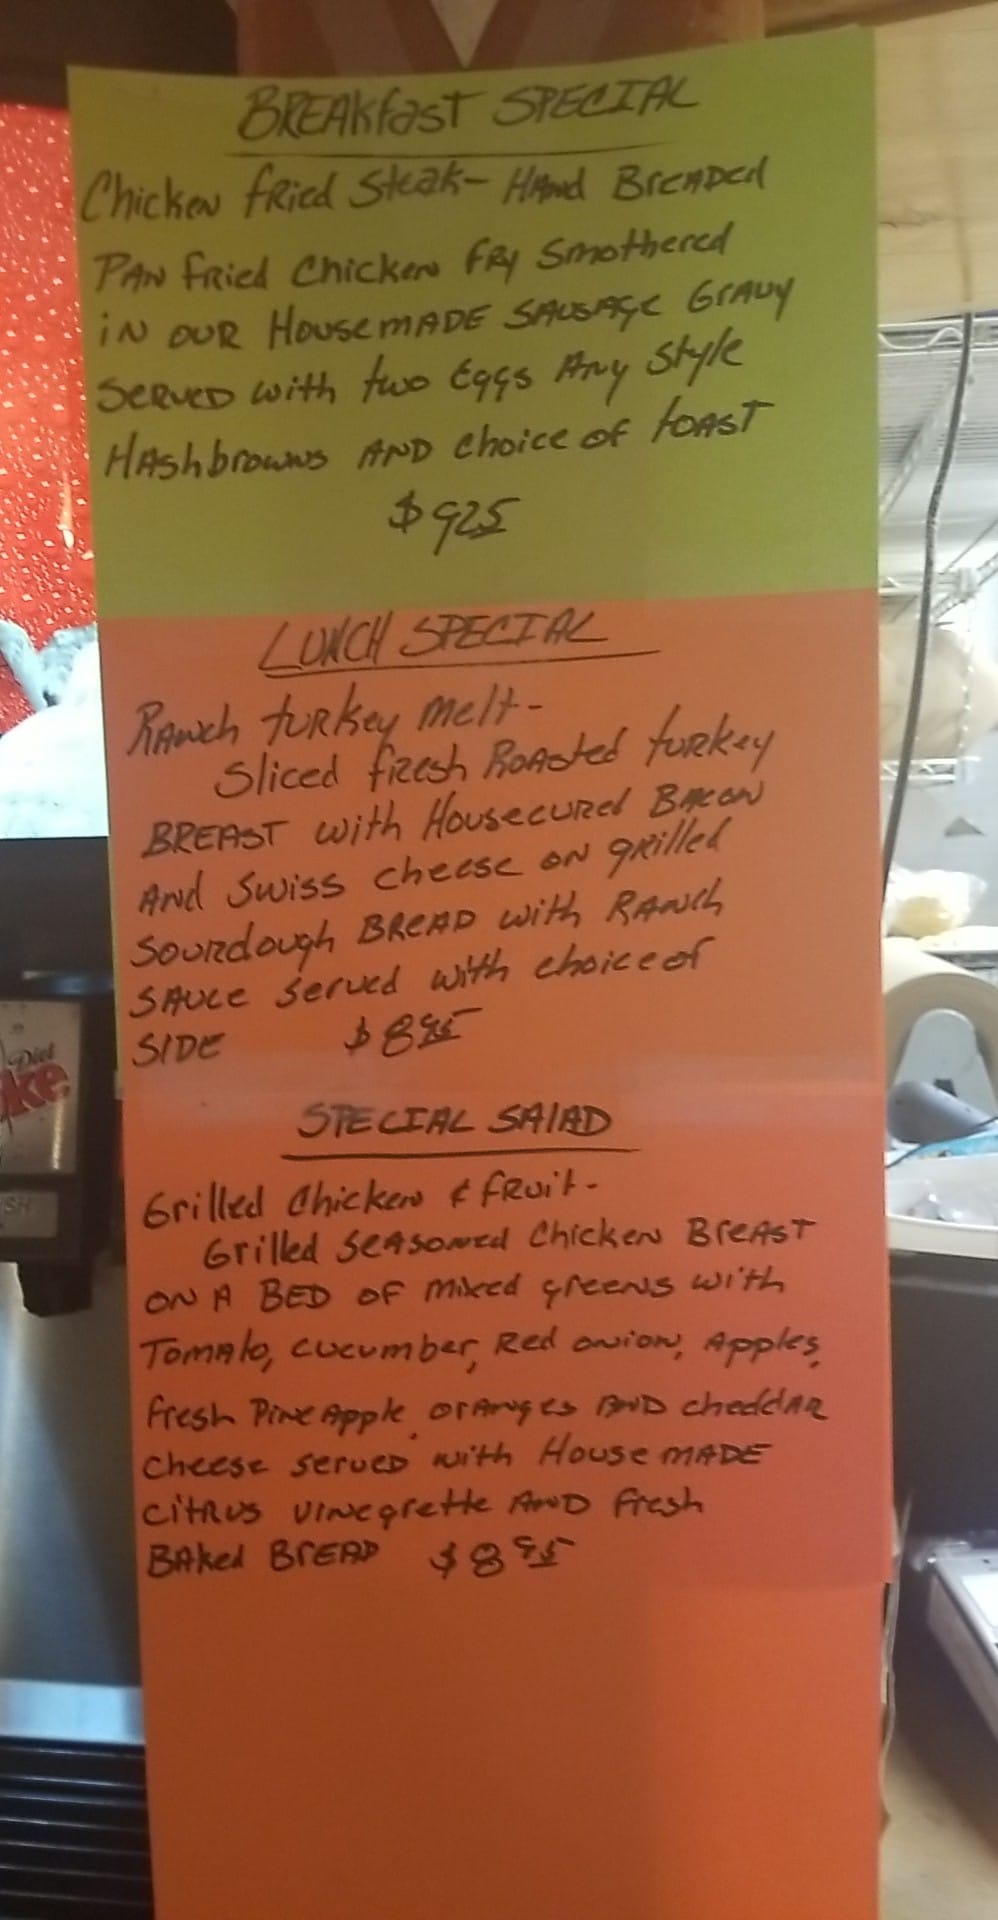 BREAKfast SPECIAL
Chicken fried Steak - Hand Breaded
Pan fried Chicken fry Smothered
in our Housemade Sausage Gravy
Served with two Eggs Any Style
Hashbrowns AND choice of toast
$925
LUNCH SPECIAL
Ranch turkey melt -
Sliced fresh Roasted turkey
BREAST with Housecured Bacon
And Swiss cheese on grilled
Sourdough BREAD with RANCH
SAUCE Served with choice of
SIDE $895
SPECIAL SALAD
Grilled Chicken & fruit -
Grilled Seasoned Chicken Breast
ON A BED OF mixed greens with
Tomato, cucumber, Red onion, Apples,
fresh Pineapple, oranges AND cheddar
cheese served with House MADE
citrus vinegrette AND fresh
Baked BREAD $895
Diet
ke
SH